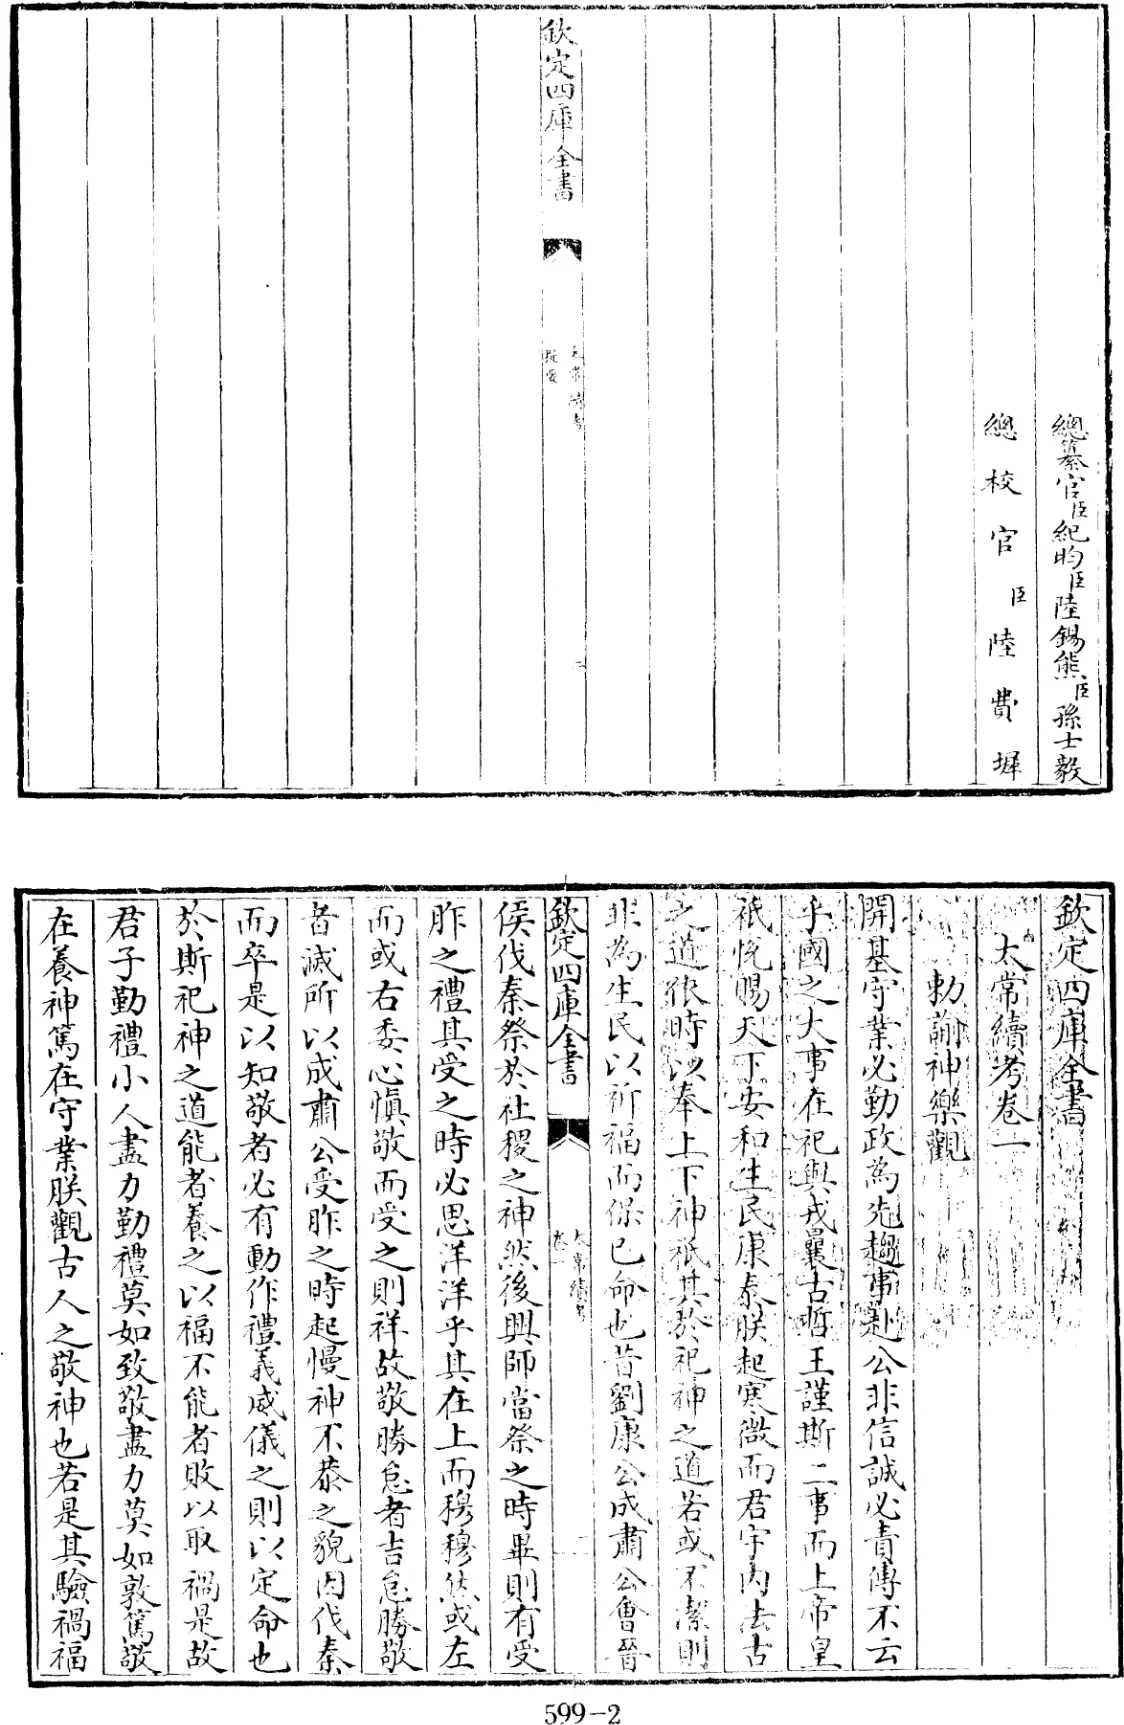 總纂官臣紀昀臣陸錫熊臣孫士毅
總校官臣陸費墀
欽定四庫全書
太常續考
提要
欽定四庫全書
太常續考卷一
勅諭神樂觀
開基守業必勤政為先趨事赴公非信誠必責傳不云
乎國之大事在祀與戎曩古哲王謹斯二事而上帝皇
祇悅賜天下安和生民康泰朕起寒微而君宇內法古
之道依時以奉上下神祇其於祀神之道若或不潔則
非為生民以祈福而保已命也昔劉康公成肅公會晉
欽定四庫全書
太常續考
卷一
侯伐秦祭於社稷之神然後興師當祭之時畢則有受
胙之禮其受之時必思洋洋乎其在上而穆穆然或左
而或右委心慎敬而受之則祥故敬勝怠者吉怠勝敬
者滅所以成肅公受胙之時起慢神不恭之貌因伐秦
而卒是以知敬者必有動作禮義威儀之則以定命也
於斯祀神之道能者養之以福不能者敗以取禍是故
君子勤禮小人盡力勤禮莫如致敬盡力莫如敦篤敬
在養神篤在守業朕觀古人之敬神也若是其驗禍福
599-2